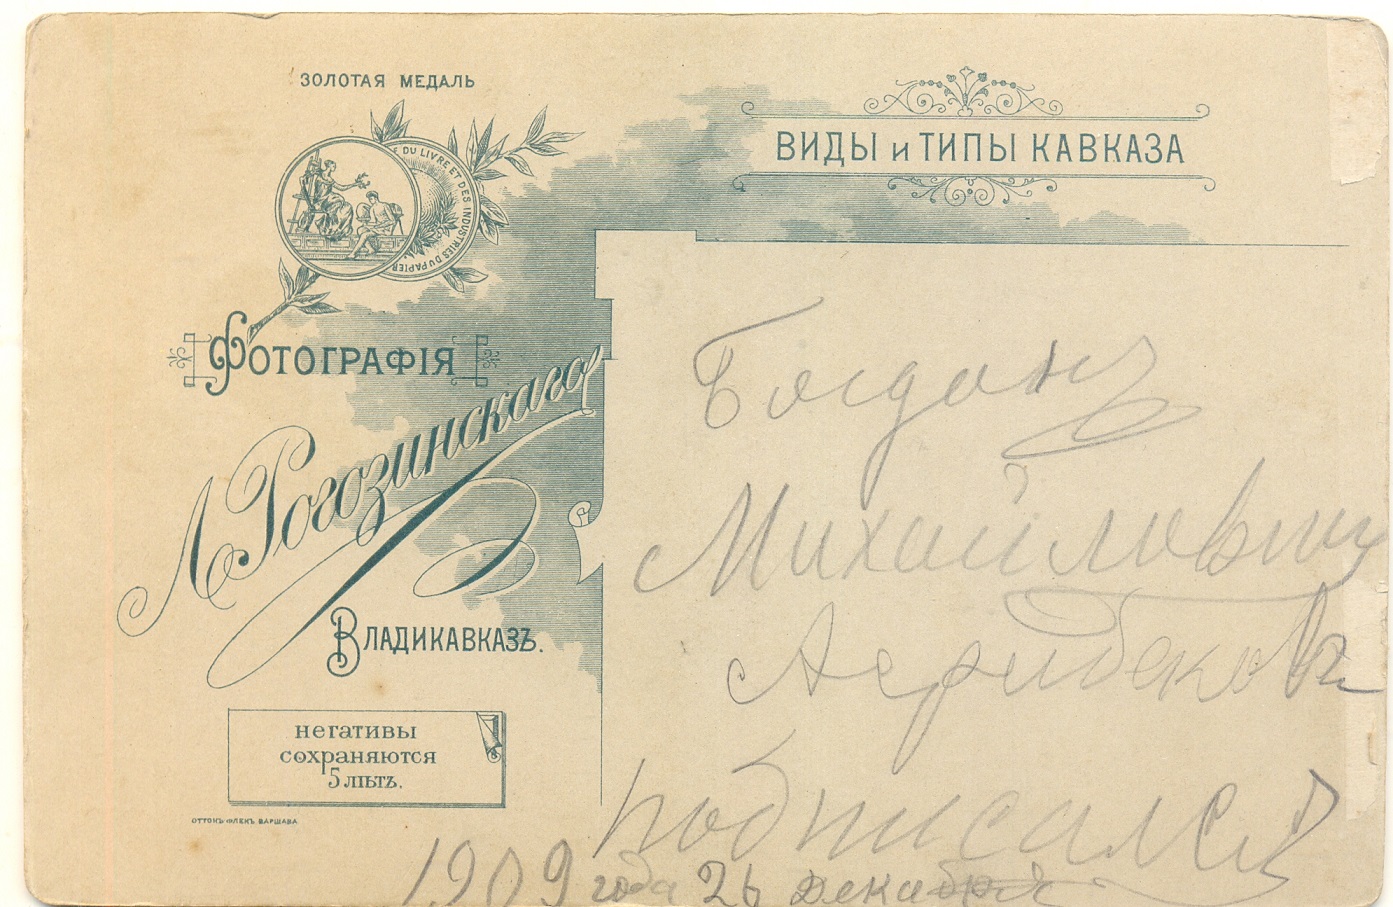 ЗОЛОТАЯ МЕДАЛЬ
DU LIVRE ET DES INDUSTRIES DU PAPIER
ВИДЫ и ТИПЫ КАВКАЗА
ФОТОГРАФІЯ
Л. Рогозинскаго
ВЛАДИКАВКАЗЪ.
негативы
сохраняются
5 лѣтъ.
ОТТОНЪ ФЛЕКЪ ВАРШАВА
Богданъ
Михайлович
подписался
1909 года 26 декабря